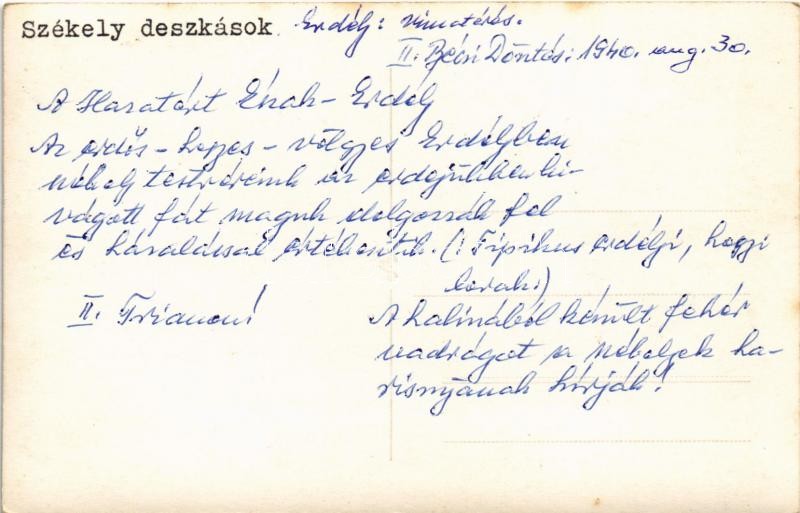 Székely deszkások Erdély: visszatérés.
II. Bécsi Döntés: 1940. aug. 30.
A Hazatért Észak-Erdély
Az erdős-hegyes-völgyes Erdélyben
székely testvéreink az erdejükben ki-
vágott fát maguk dolgozzák fel
és házalással értékesítik. (: Tipikus erdélyi, hegyi
lovak:)
II. Trianon!
A halinából készült fehér
nadrágot a székelyek ha-
risnyának hívják!